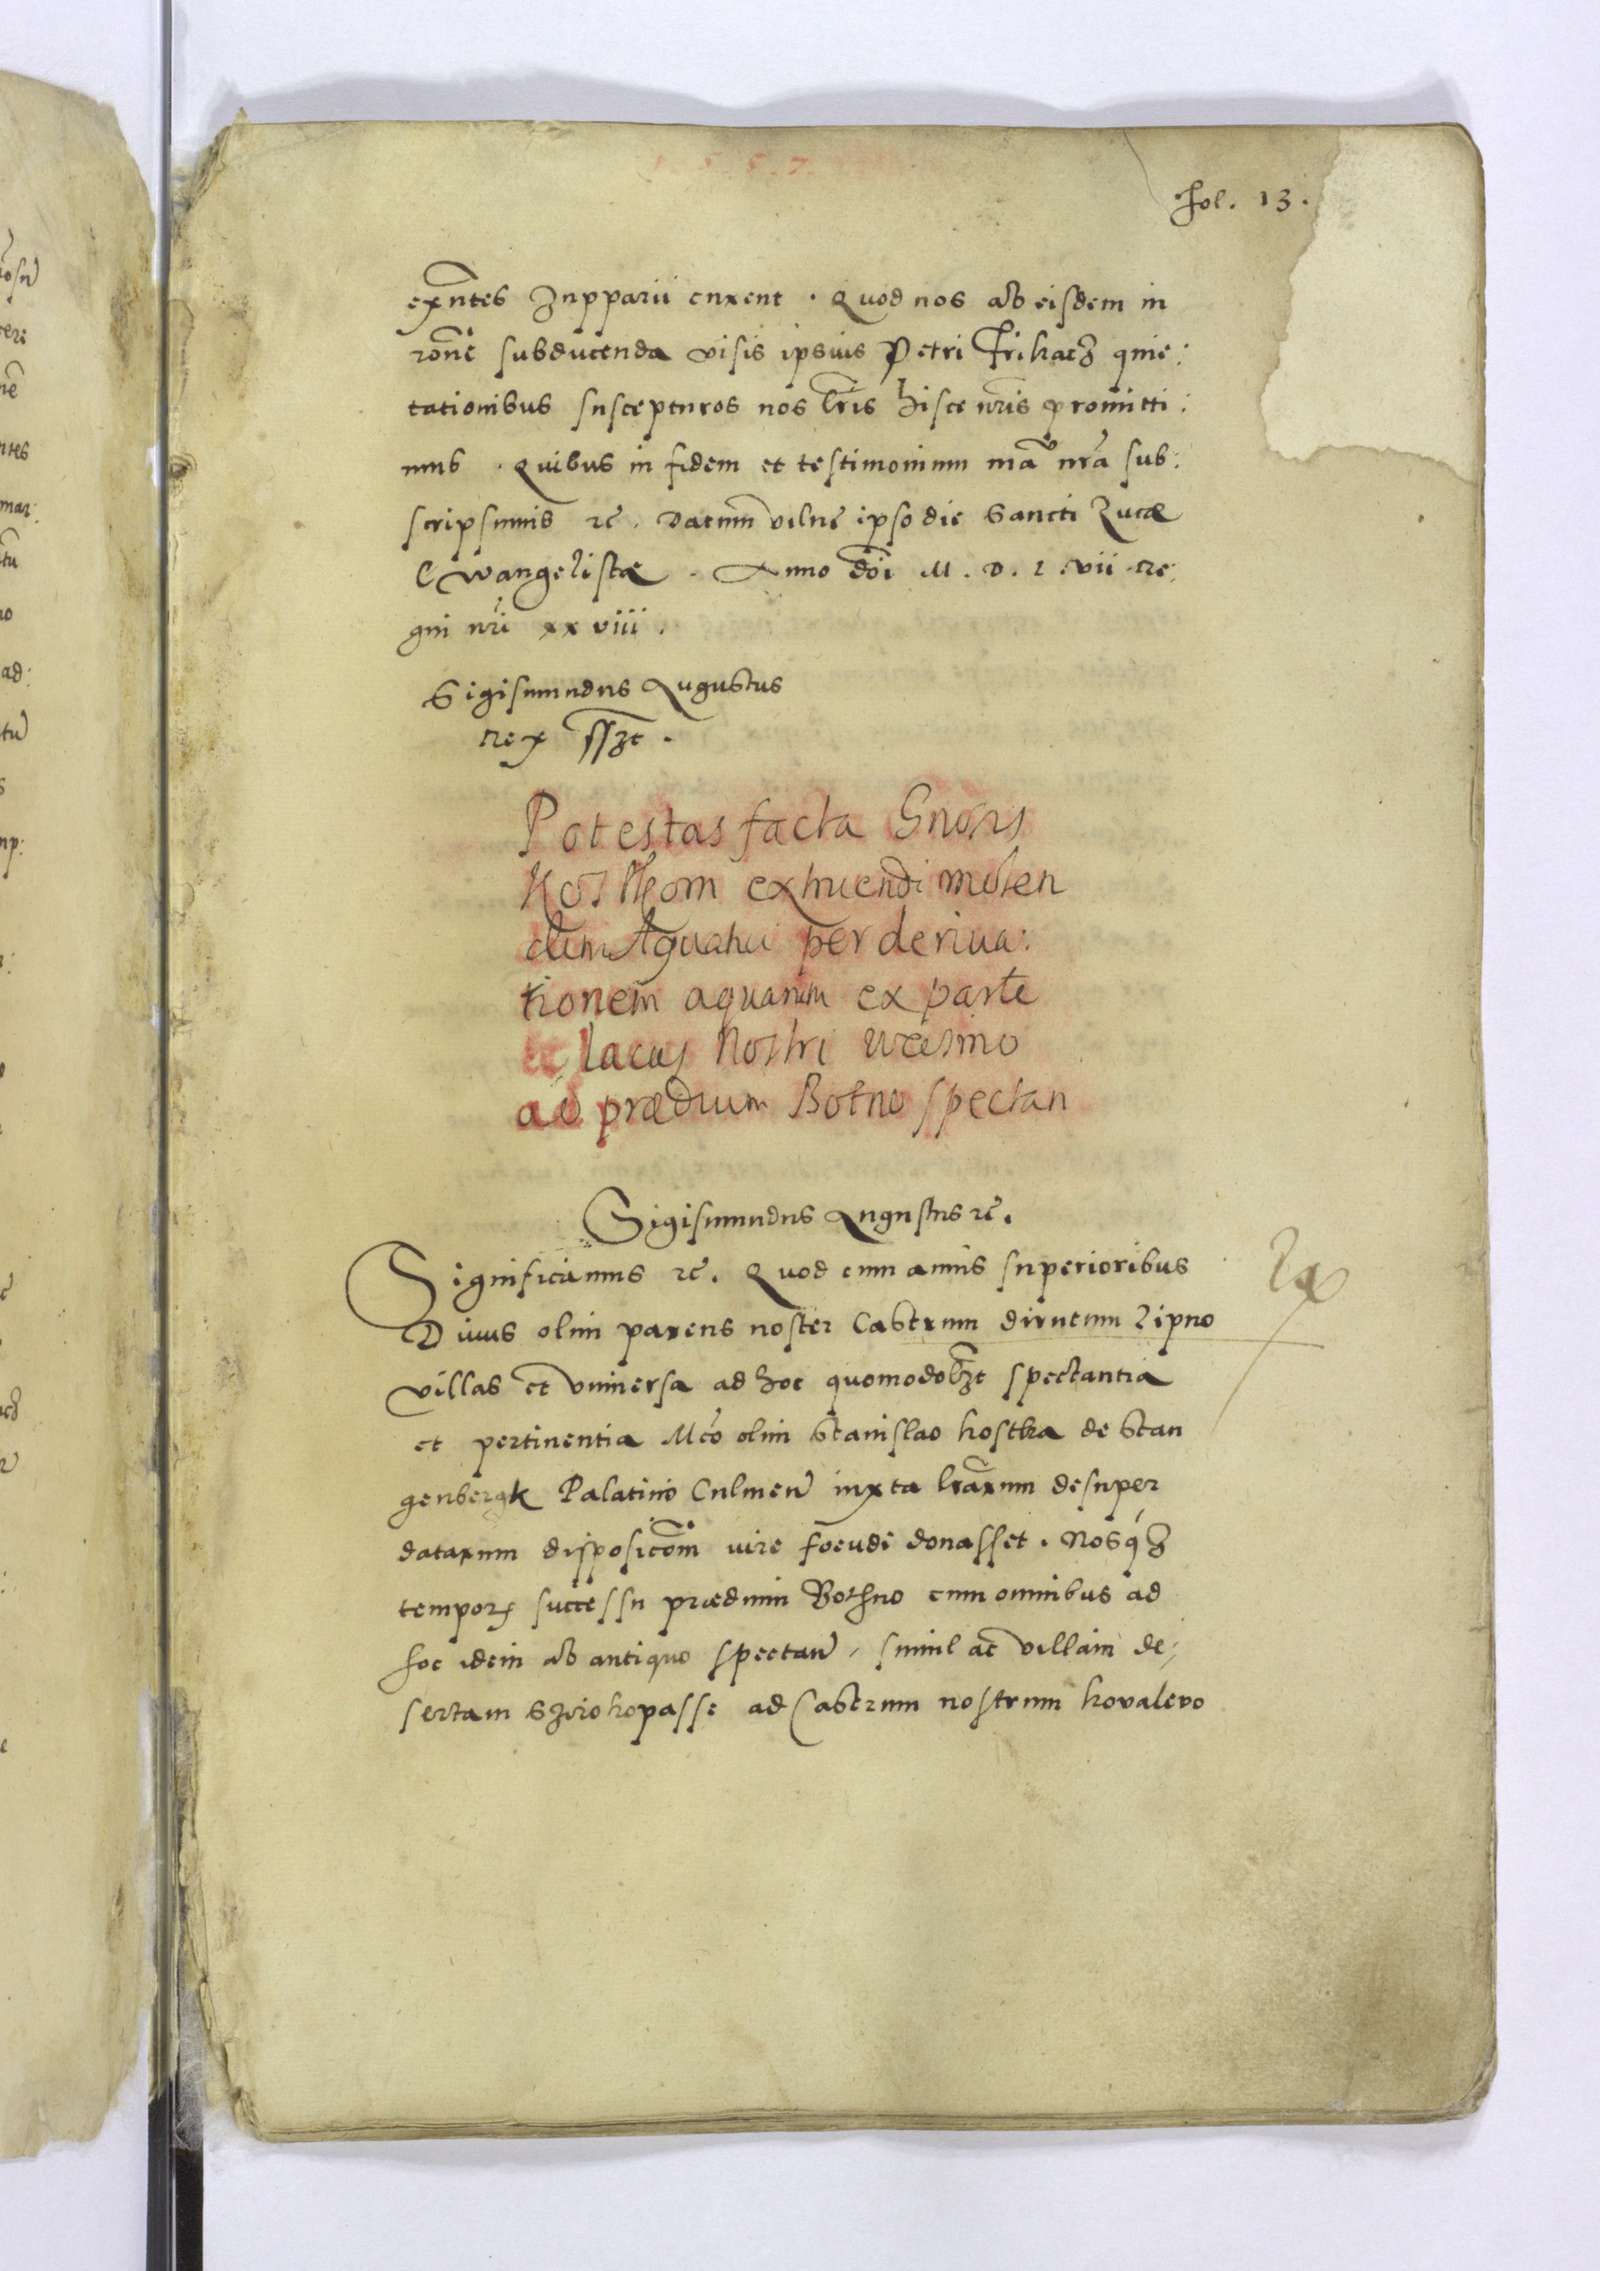 1 5 5 7
fol. 13.
exn̄tes Zupparii curent. Quod nos ab eisdem in
rōne subducenda visis ipsius Petri Frikacz quie:
tationibus suscepturos nos lr̄is hisce nr̄is promitti:
mus. Quibus in fidem et testimonium manū nr̄a sub:
scripsimus rc̄. Datum vilne ipso die Sancti Lucæ
Ewangelistæ. Anno dōi M. D. L vii re:
gni nr̄i xxviii.
Sigismundus Augustus
Rex sszt.
Potestas facta Gnoris
Kostkom extruendi molen
dini Aquatici per deriua:
tionem aquarum ex parte
lacus nostri
ad prædium Botno spectan
Sigismundus Augustus rc̄.
Significamus rc̄. Quod cum annis superioribus
Diuus olim parens noster Castrum dirutum Lipno
villas et vniuersa ad hoc quomodolzt spectantia
et pertinentia Mco olim Stanislao kostka de Stan
genbergk Palatino Culmen̄ iuxta lr̄arum desuper
datarum disposicōm iure foeudi donasset. Nosq3
tempor̄ successu prædium Bothno cum omnibus ad
hoc idem ab antiquo spectan̄, simul ac villam de,
sertam Szirokopasse ad Castrum nostrum kovalevo